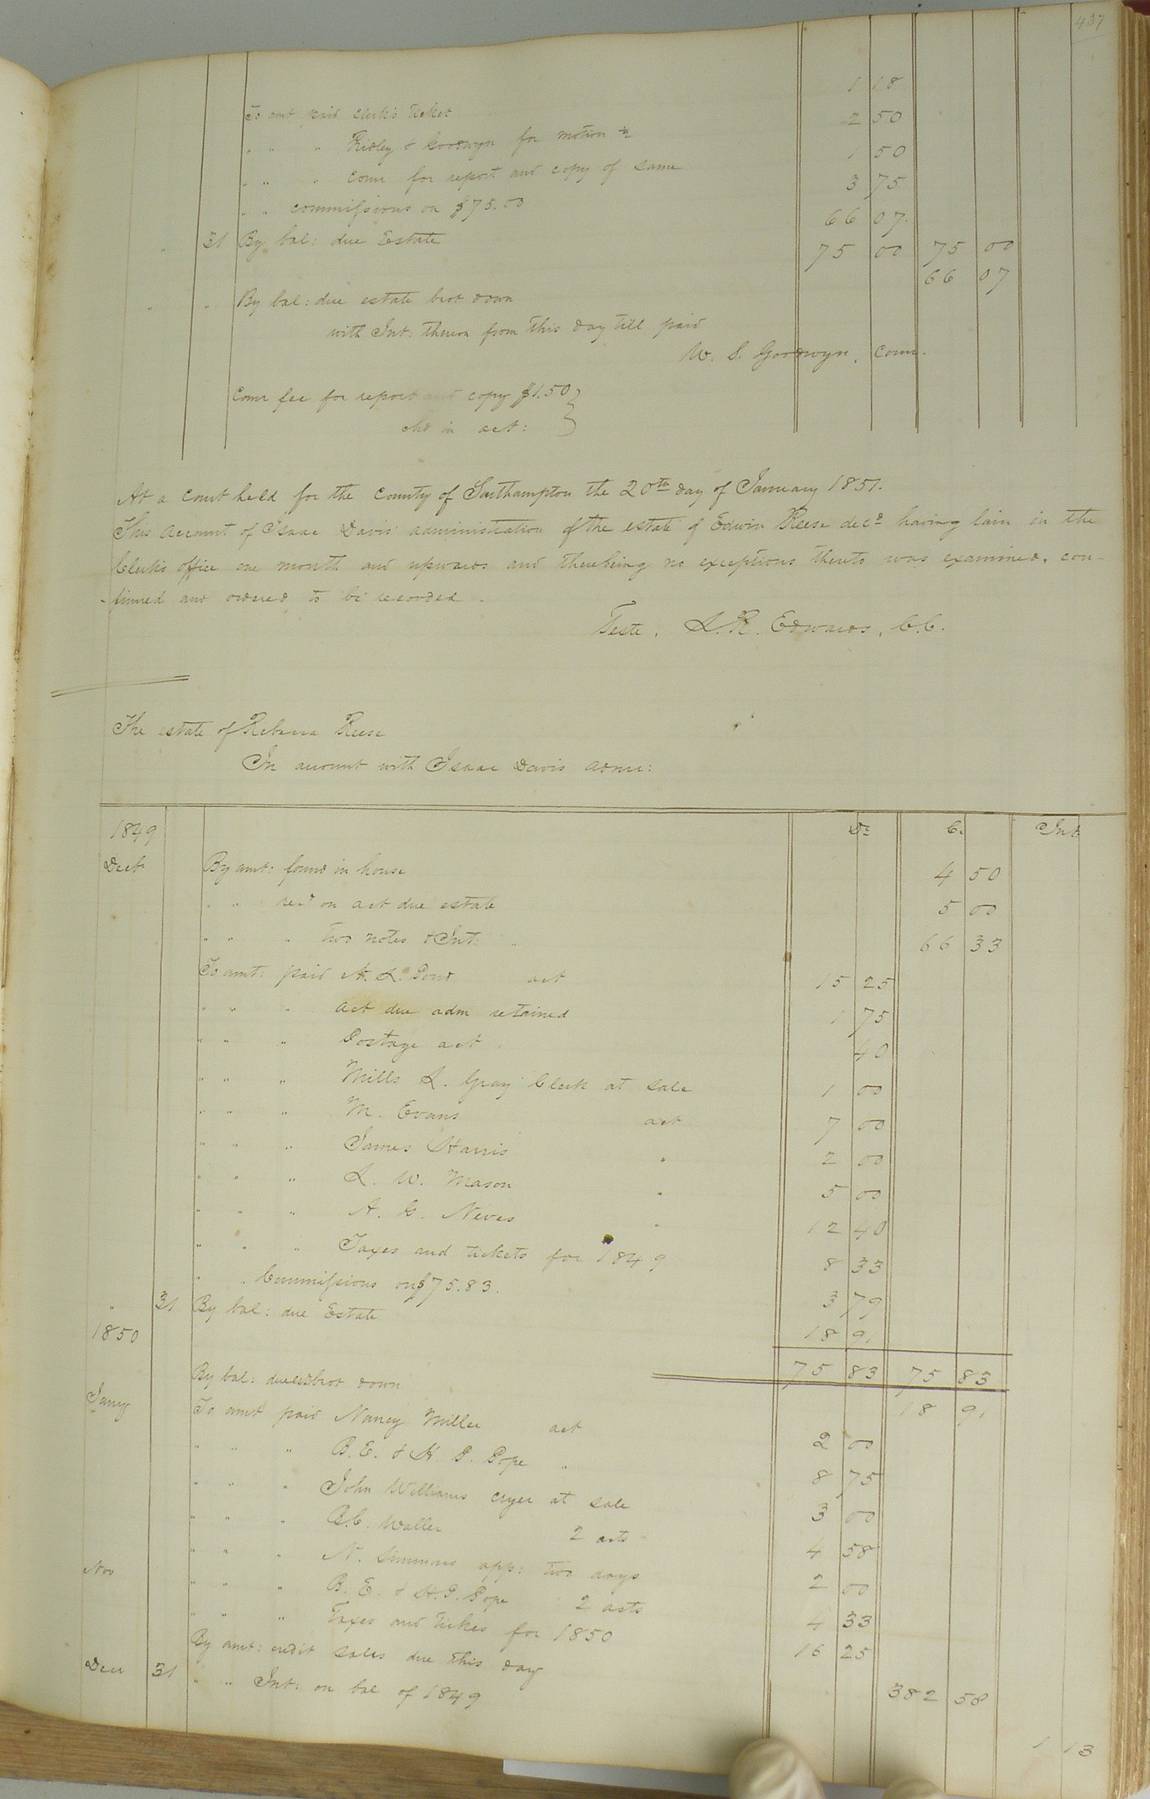 437
1 18
To amt paid clerk's ticket 2 50
" " " Ridley & Goodwyn for motion &c 1 50
" " " Comr for report and copy of same 3 75
" " commissions on $75.00 66 07
" 31 By bal: due Estate 75 00 75 00
66 07
" " By bal: due estate brot down
with Int. thereon from this day till paid
W. S. Goodwyn, Comr.
Comr fee for report and copy $1.50 }
chd in act: }
At a court held for the County of Southampton the 20th day of January 1851.
This Account of Isaac Davis' administration of the estate of Edwin Reese decd having lain in the
Clerk's office one month and upwards and there being no exceptions thereto was examined, con-
-firmed and ordered to be recorded.
Teste, L. R. Edwards, C.C.
The estate of Rebecca Reese
In account with Isaac Davis admr:
1849 Dr C. Int
Dect By amt: found in house 4 50
" " recd on act due estate 5 00
" " " two notes & Int: 66 33
To amt: paid act 15 25
" " " act due adm retained 1 75
" " " Postage act 40
" " " Mills L. Gray Clerk at sale 1 00
" " " M. Evans act 7 00
" " " James Harris " 2 00
" " " L. W. Mason " 5 00
" " " A. G. Neves " 12 40
" " " Taxes and tickets for 1849 8 33
" " Commissions on $75.83. 3 79
" 31 By bal: due Estate 18 91
1850 75 83 75 83
By bal: due est brot down 18 91
Jany To amt paid Nancy Miller act 2 00
" " " B. E. & H. P. Pope " 8 75
" " " John Williams cryer at sale 3 00
" " " B.C. Waller 2 acts 4 58
" " " N. Simmons app: two days 2 00
Nov " " " B. E. & H. P. Pope 2 acts 4 33
" " " Taxes and tickes for 1850 16 25
By amt: credit sales due this day 382 58
Decr 31 " " Int: on bal of 1849 1 13